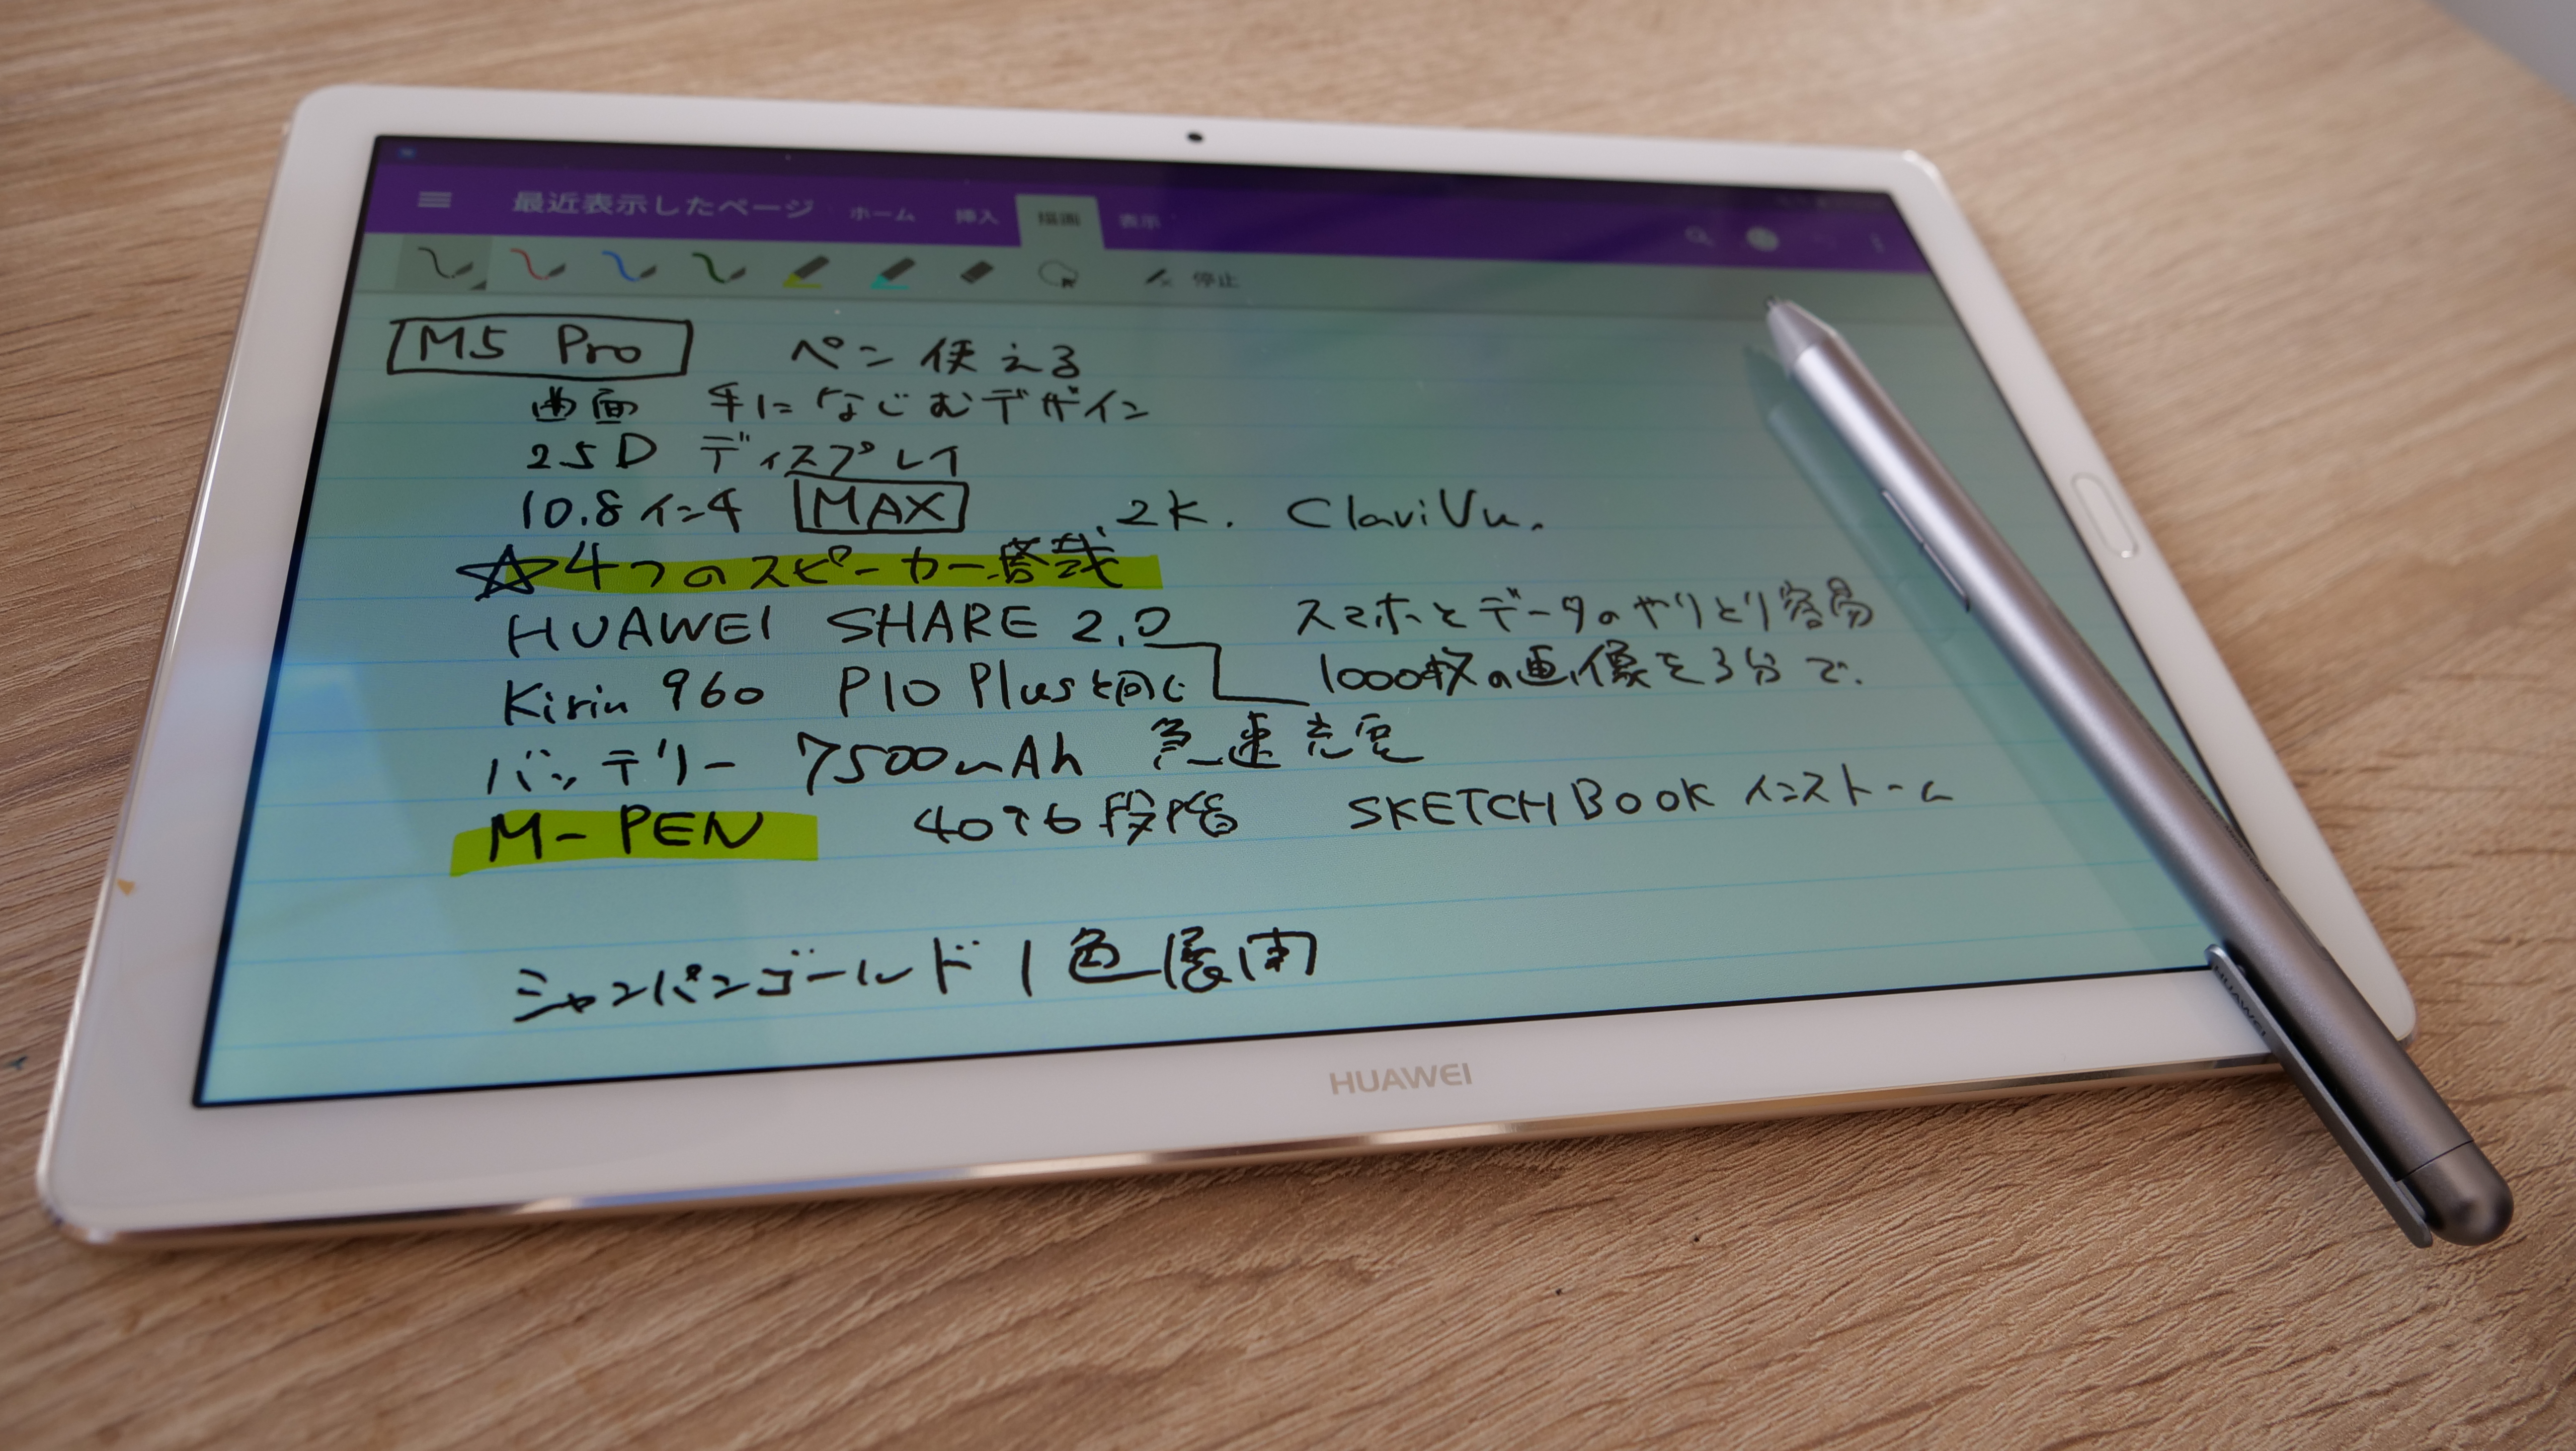 最近表示したページ ホーム 挿入 描画 表示
停止
M5 Pro ペン使える
曲面 手になじむデザイン
2.5D ディスプレイ
10.8インチ MAX 2K. ClariVu.
☆4つのスピーカー搭載
HUAWEI SHARE 2.0 スマホとデータのやりとり容易
Kirin 960 P10 Plusと同じ 1000枚の画像を3分で.
バッテリー 7500mAh 急速充電
M-PEN 4096段階 SKETCH BOOK インストーム
シャンパンゴールド 1色展開
HUAWEI
HUAWEI